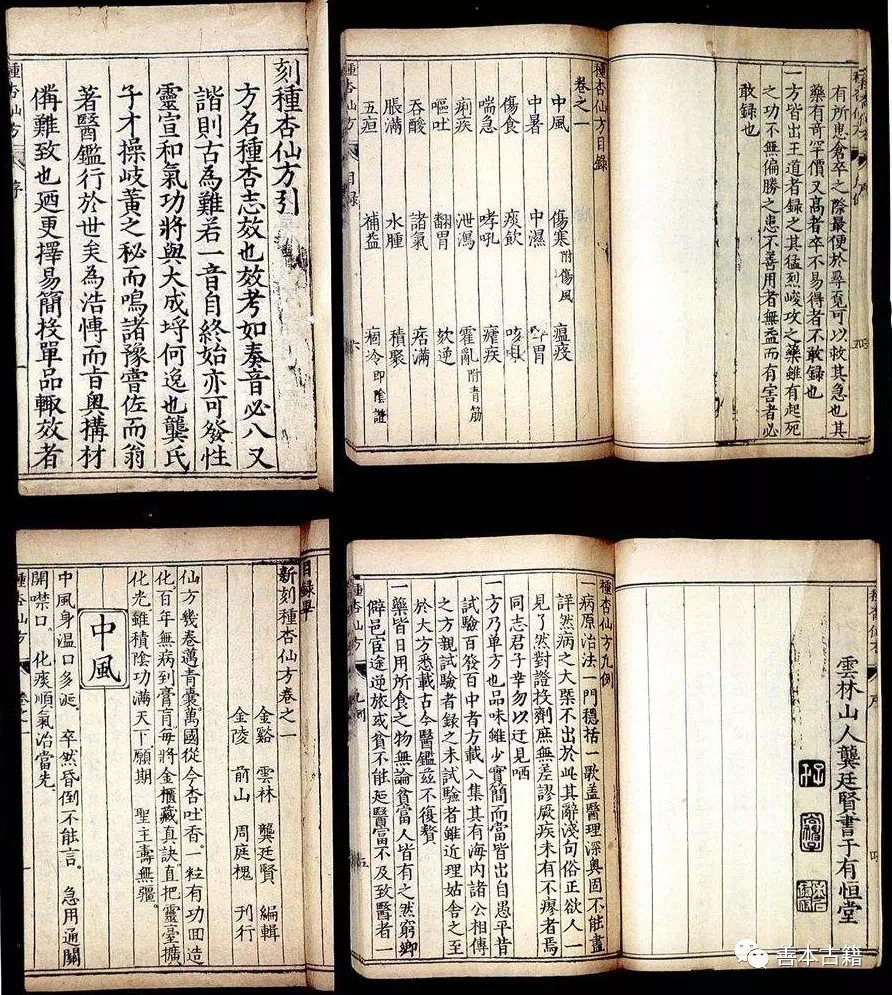 刻種杏仙方引
方名種杏志效也效考如奏音必八又
諧則古為難若一音自終始亦可發性
靈宣和氣功將與大成埒何逸也龔氏
子才操岐黃之秘而鳴諸豫嘗佐而翁
著醫鑑行於世矣為浩愽而旨奥搆材
僃難致也廼更擇易簡投單品輙效者
種杏仙方
序
有所患倉卒之際最便於尋覓可以救其急也其
藥有奇罕價又高者卒不易得者不敢録也
一方皆出王道者録之其猛烈峻攻之藥雖有起死
之功不無偏勝之患不善用者無益而有害者必
敢録也
種杏仙方目録
卷之一
中風 傷寒附傷風 瘟疫
中暑 中濕
傷食 痰飲 咳嗽
喘急 哮吼 瘧疾
痢疾 泄瀉 霍亂附青筋
嘔吐 翻胃 欬逆
吞酸 諸氣 痞滿
脹滿 水腫 積聚
五疸 補益 痼冷即陰證
種杏仙方
目録
目録畢
新刻種杏仙方卷之一
金谿 雲林 龔廷賢 編輯
金陵 前山 周庭槐 刊行
仙方幾卷邁青囊萬國從今杏吐香一粒有功回造
化百年無病到膏肓每將金櫃藏真訣直把靈臺擴
化光雖積陰功滿天下願期 聖主壽無疆
中風
中風身温口多涎 卒然昏倒不能言 急用通關
開噤口 化痰順氣治當先
種杏仙方
卷之一
種杏仙方
序
雲林山人龔廷賢書于有恒堂
種杏仙方凡例
一病原治法一門檃括一歌盖醫理深奥固不能盡
詳然病之大槩不出於此其辭淺句俗正欲人一
見了然對證投劑庶無差謬厥疾未有不瘳者焉
同志君子幸勿以迂見哂
一方乃单方也品味雖少實簡而當皆出自愚平昔
試驗百發百中者方載入集其有海内諸公相傳
之方親試驗者録之未試驗者雖近理姑舍之至
於大方悉載古今醫鑑兹不復贅
一藥皆日用所食之物無論貧富人皆有之然窮鄉
僻邑宦途逆旅或貧不能延醫富不及致醫者一
種杏仙方
凡例
善本古籍